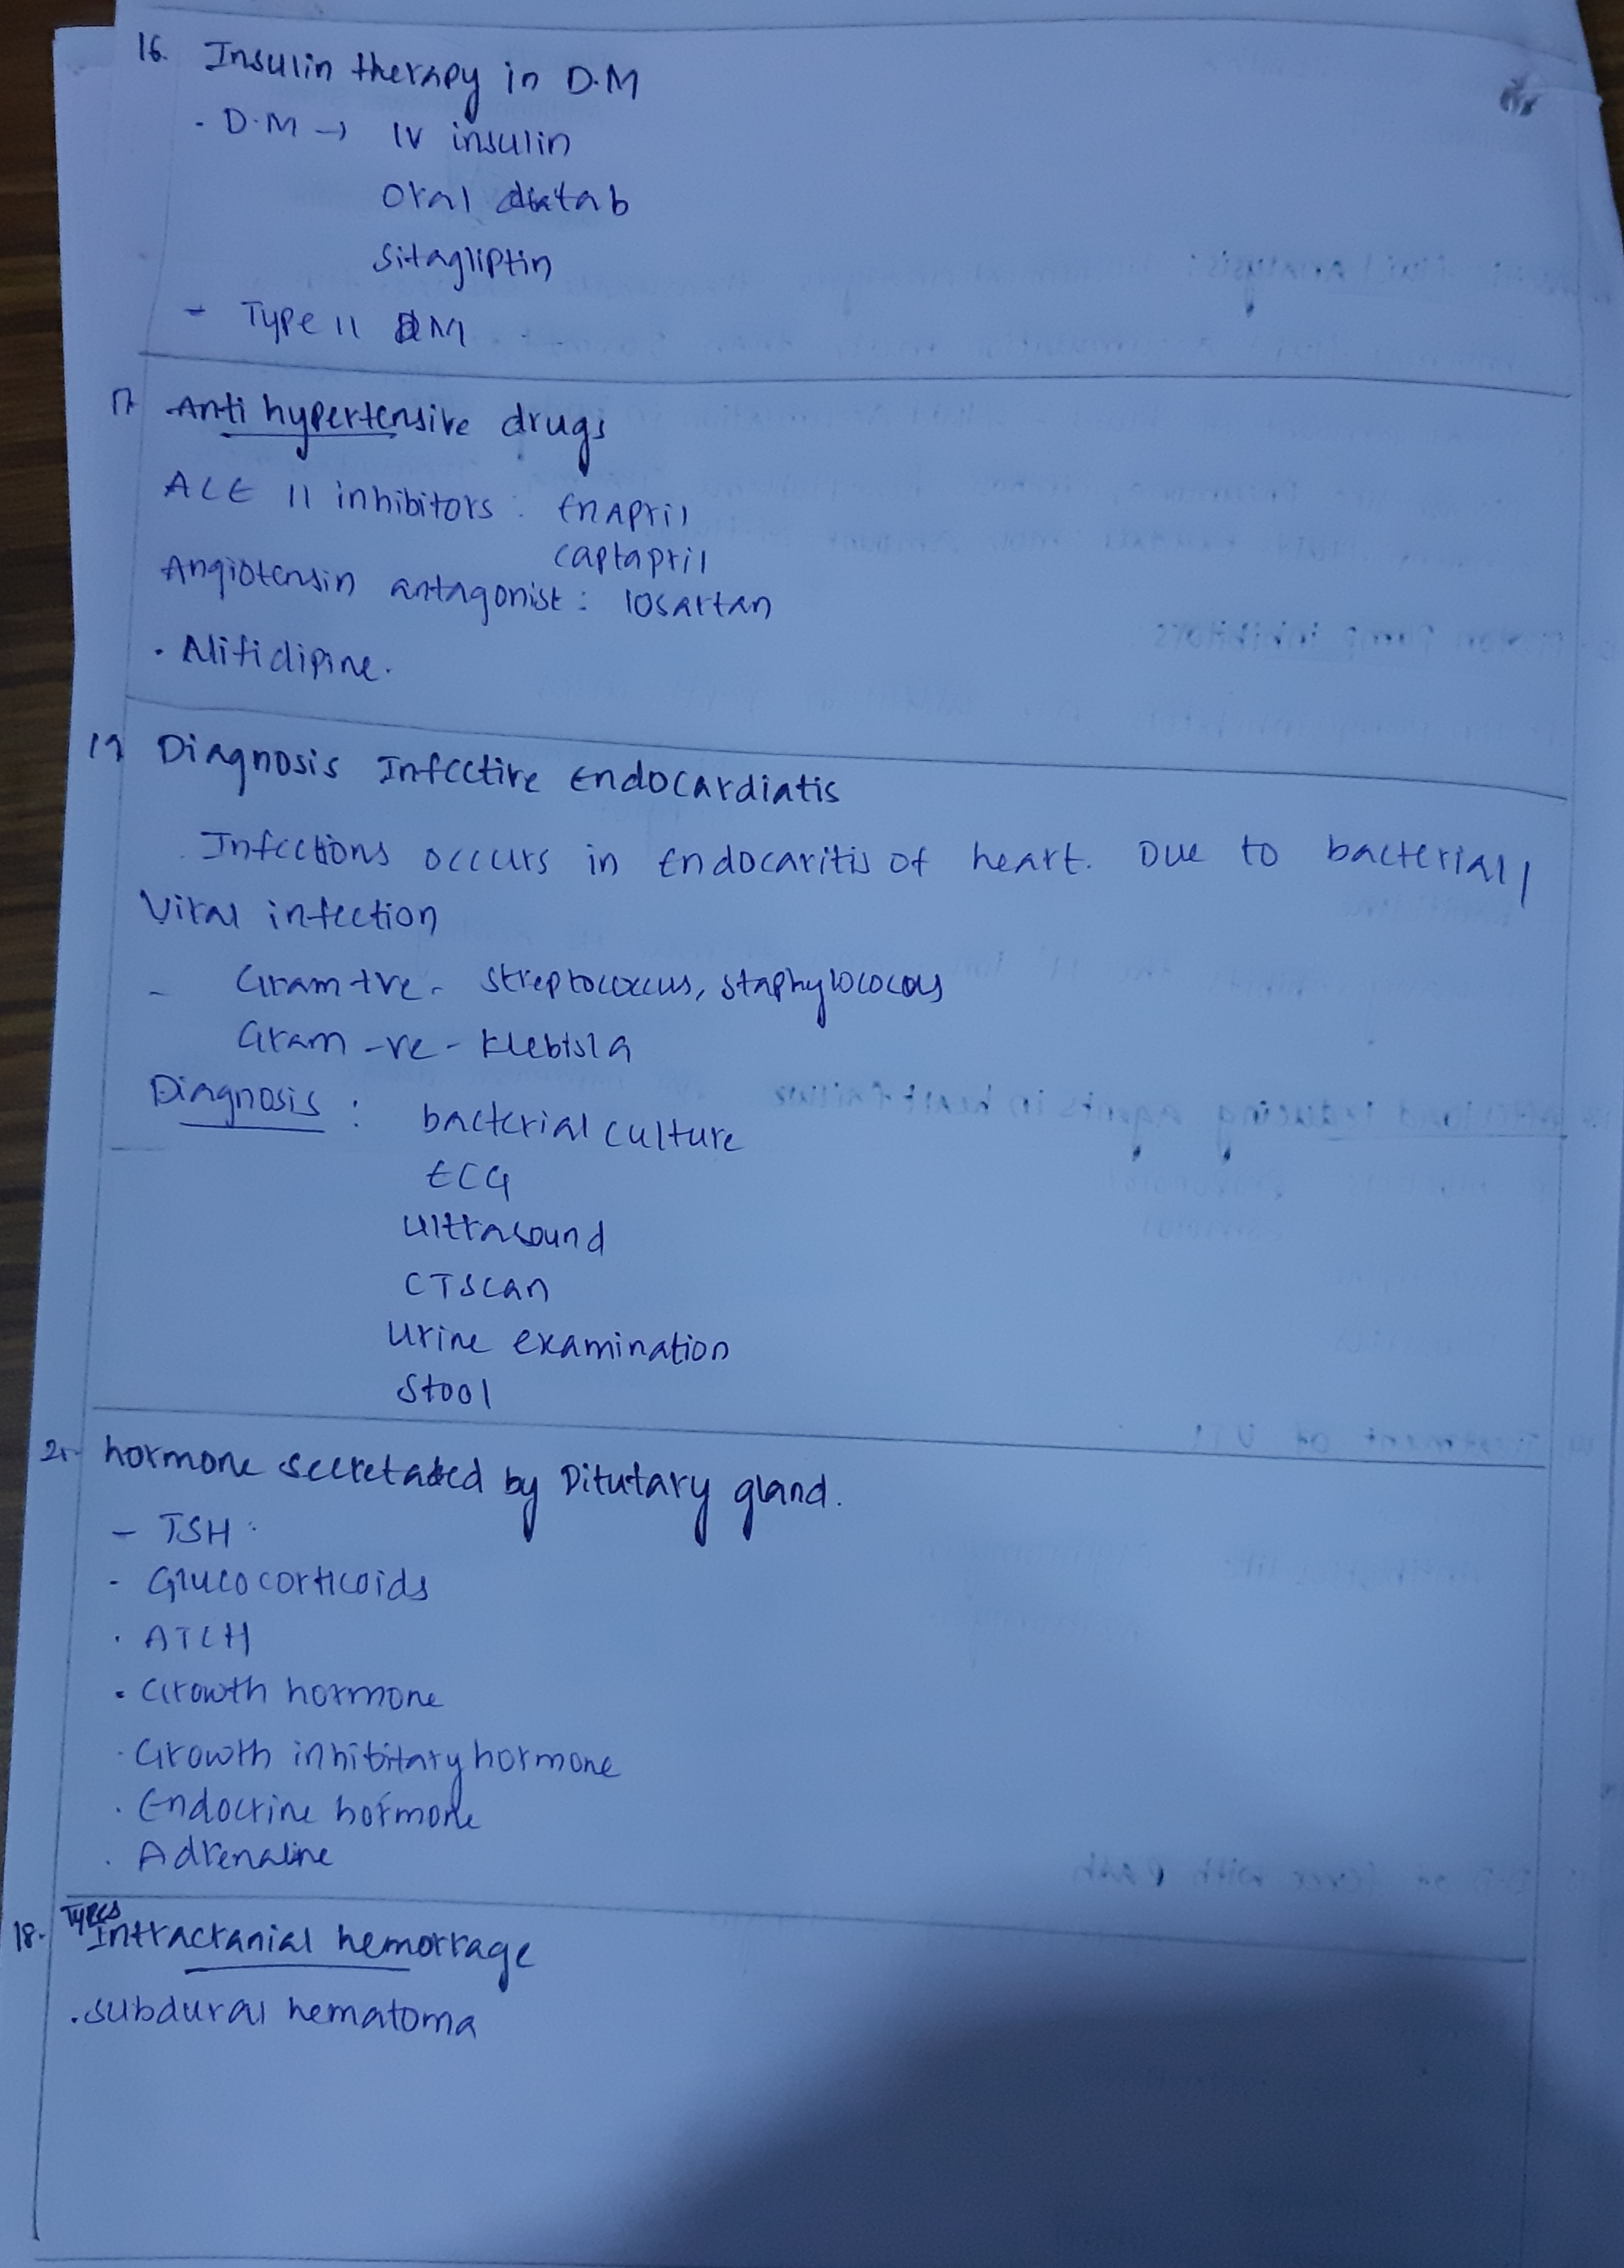 16. Insulin therapy in D.M
- D.M → IV insulin
Oral tab
Sitagliptin
- Type II DM
17 Anti hypertensive drugs
ACE II inhibitors : EnApril
captapril
Angiotensin antagonist : losartan
. Nifidipine.
19 Diagnosis Infective Endocardiatis
Infections occurs in Endocaritis of heart. Due to bacterial/
Viral infection
- Gram +ve - Streptococcus, Staphylococous
Gram -ve - Klebisla
Diagnosis : bacterial culture
ECG
Ultrasound
CT Scan
Urine examination
Stool
hormone secretated by Pitutary gland.
- TSH
- Glucocorticoids
. ATCH
. Growth hormone
. Growth inhibitary hormone
. Endocrine hormone
. Adrenaline
18. Types Intracranial hemorrage
. Subdural hematoma